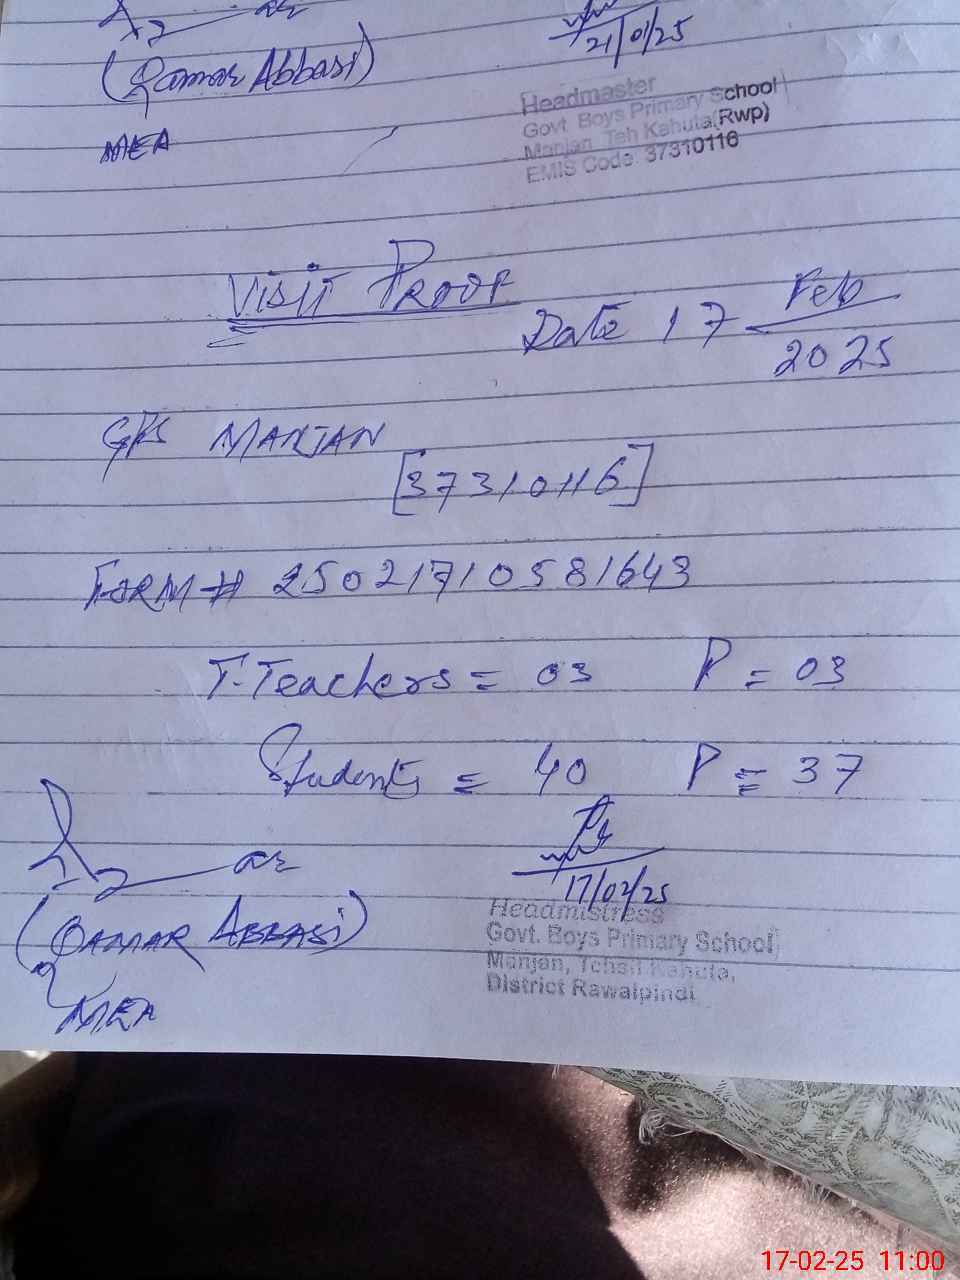 (Qamar Abbasi)
MEA
21/01/25
Headmaster
Govt. Boys Primary School
Manjan Teh Kahuta(Rwp)
EMIS Code: 37310116
VISIT PROOF
Date 17 Feb 2025
GPS MANJAN
[37310116]
FORM # 25021710581643
T.Teachers = 03 P = 03
Students = 40 P = 37
17/02/25
(QAMAR ABBASI)
MEA
Headmistress
Govt. Boys Primary School
Manjan, Tehsil Kahuta,
District Rawalpindi
17-02-25 11:00